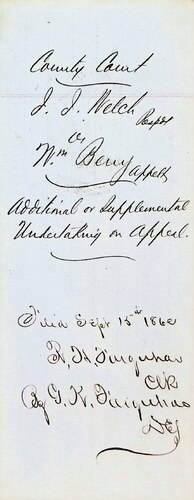 County Court
J. J. Welch
Respt
vs
Wm Berry
Appellt
Additional or Supplemental
Undertaking on Appeal.
Filed Sept 15th 1862
R. H. Farquhar
Clk
By G. K. Farquhar